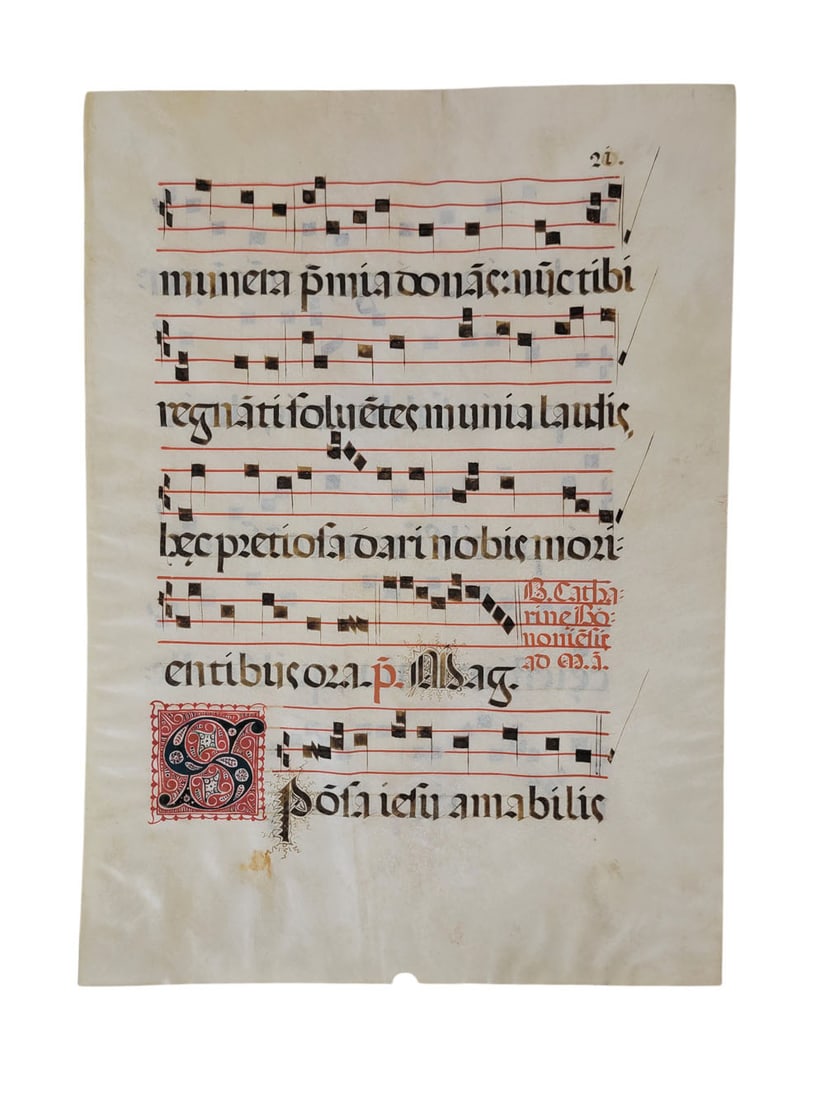 21.
munera p̄mia donās: nūc tibi
regnāti soluētes munia laudis,
hęc pretiosa dari nobis mori-
entibus ora. p̄. Mag.
B. Catha-
rine Bo-
noniēsis
ad M. ā.
Spōsa iesu amabilis